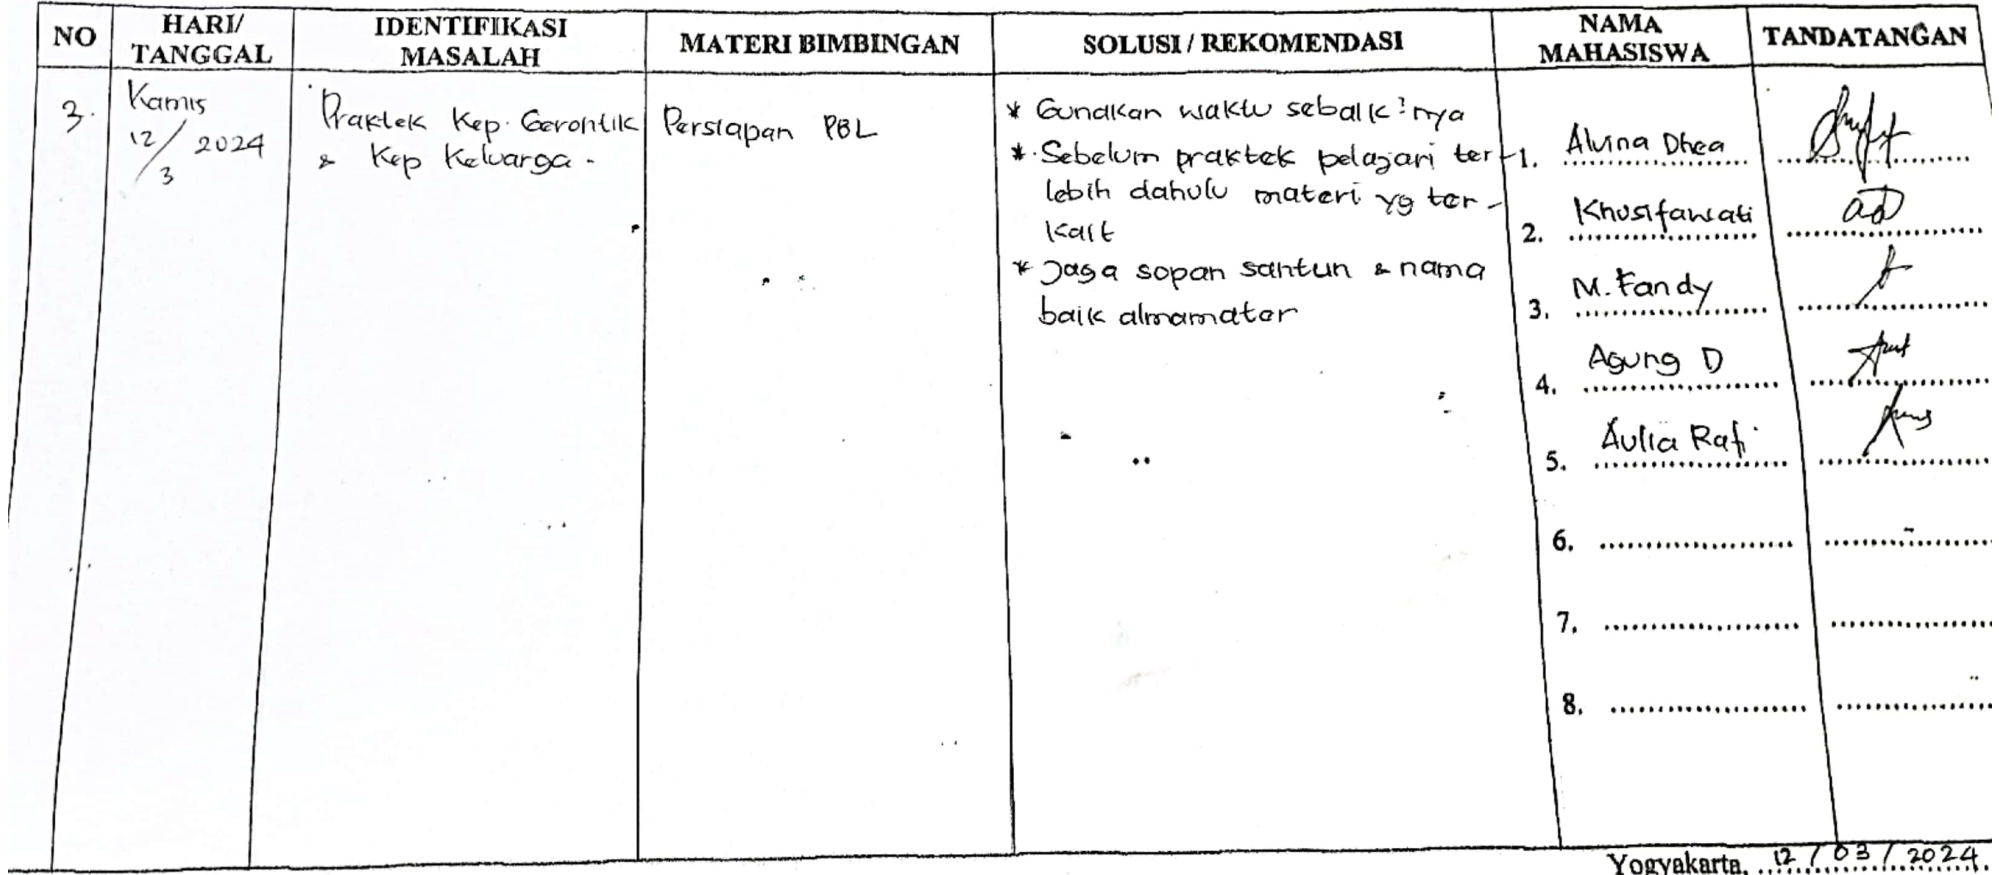 NO
HARI/
TANGGAL
IDENTIFIKASI
MASALAH
MATERI BIMBINGAN
SOLUSI / REKOMENDASI
NAMA
MAHASISWA
TANDATANGAN
3.
Kamis
12/3 2024
Praktek Kep. Gerontik
& Kep Keluarga.
Persiapan PBL
* Gunakan waktu sebaik²nya
* Sebelum praktek pelajari ter-
lebih dahulu materi yg ter-
kait
* Jaga sopan santun & nama
baik almamater
1. Alvina Dhea
2. Khusifawati
3. M. Fandy
4. Agung D
5. Aulia Rafi
6.
7.
8.
Yogyakarta, 12/03/2024.